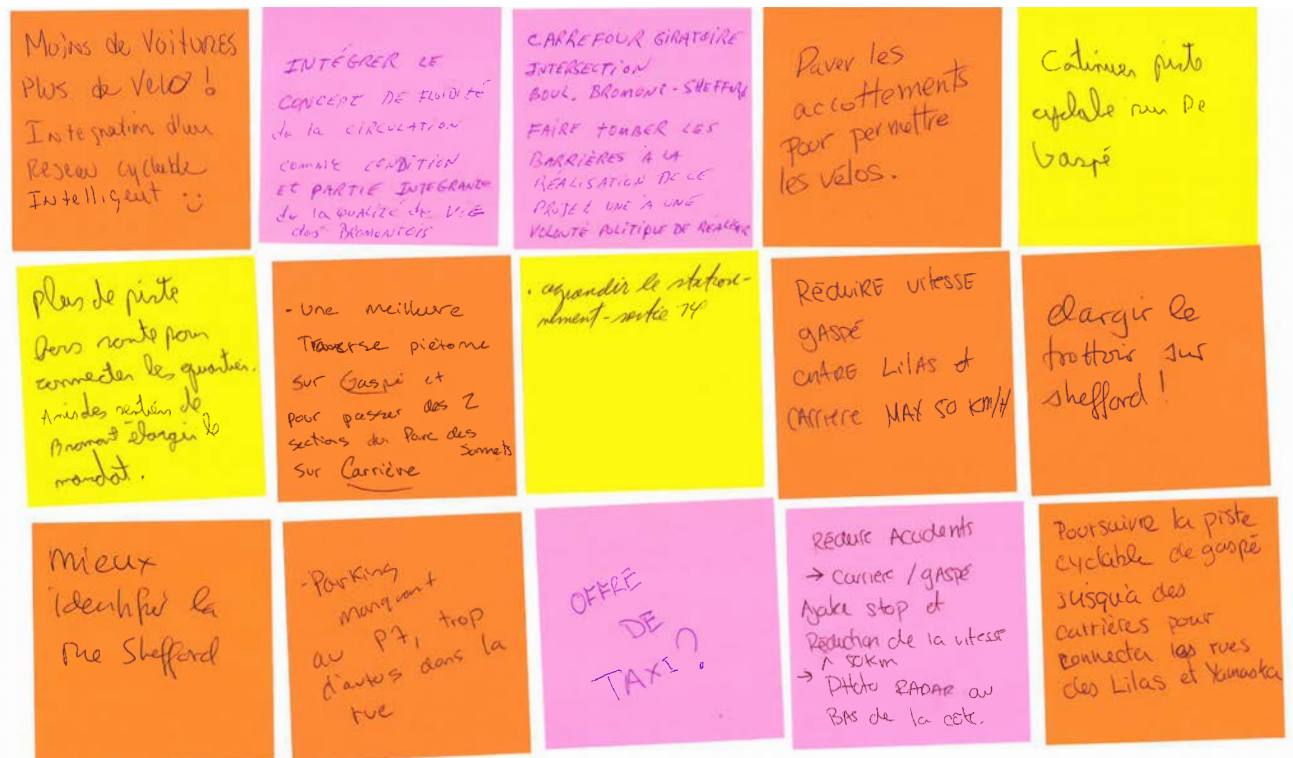 Moins de Voitures
Plus de Velo !
Integration d'un
Reseau cyclable
Intelligent :)
INTÉGRER LE
CONCEPT DE FLUIDITÉ
de la CIRCULATION
comme CONDITION
ET PARTIE INTEGRANTE
de la QUALITÉ de VIE
des BROMONTOIS
CARREFOUR GIRATOIRE
INTERSECTION
BOUL. BROMONT - SHEFFORD
FAIRE TOMBER LES
BARRIÈRES A LA
RÉALISATION DE CE
PROJET UNE A UNE
VOLONTÉ POLITIQUE DE RÉALISER
Paver les
accottements
Pour permettre
les vélos.
Continuer piste
cyclable rue De
Gaspé
plus de piste
hors route pour
connecter les quartiers.
Amis des sentiers de
Bromont élargir le
mandat.
- Une meilleure
Traverse piétonne
sur Gaspé et
pour passer des 2
sections du Parc des
Sommets
sur Carrière
• agrandir le station-
nement - sortie 74
RÉDUIRE vitesse
GASPÉ
entre Lilas et
CArriere MAX 50 km/H
élargir le
trottoir sur
shefford !
Mieux
identifier la
rue Shefford
- Parking
manquant
au P7, trop
d'autos dans la
rue
OFFRE
DE
TAXI ?
Réduire Accidents
→ Carriere / gASPÉ
Ajoute stop et
Réduction de la vitesse
^ 50km
→ PHoto RADAR au
BAS de la côte.
Poursuivre la piste
cyclable de gaspé
jusqu'à des
carrières pour
connecter les rues
des Lilas et Yamaska